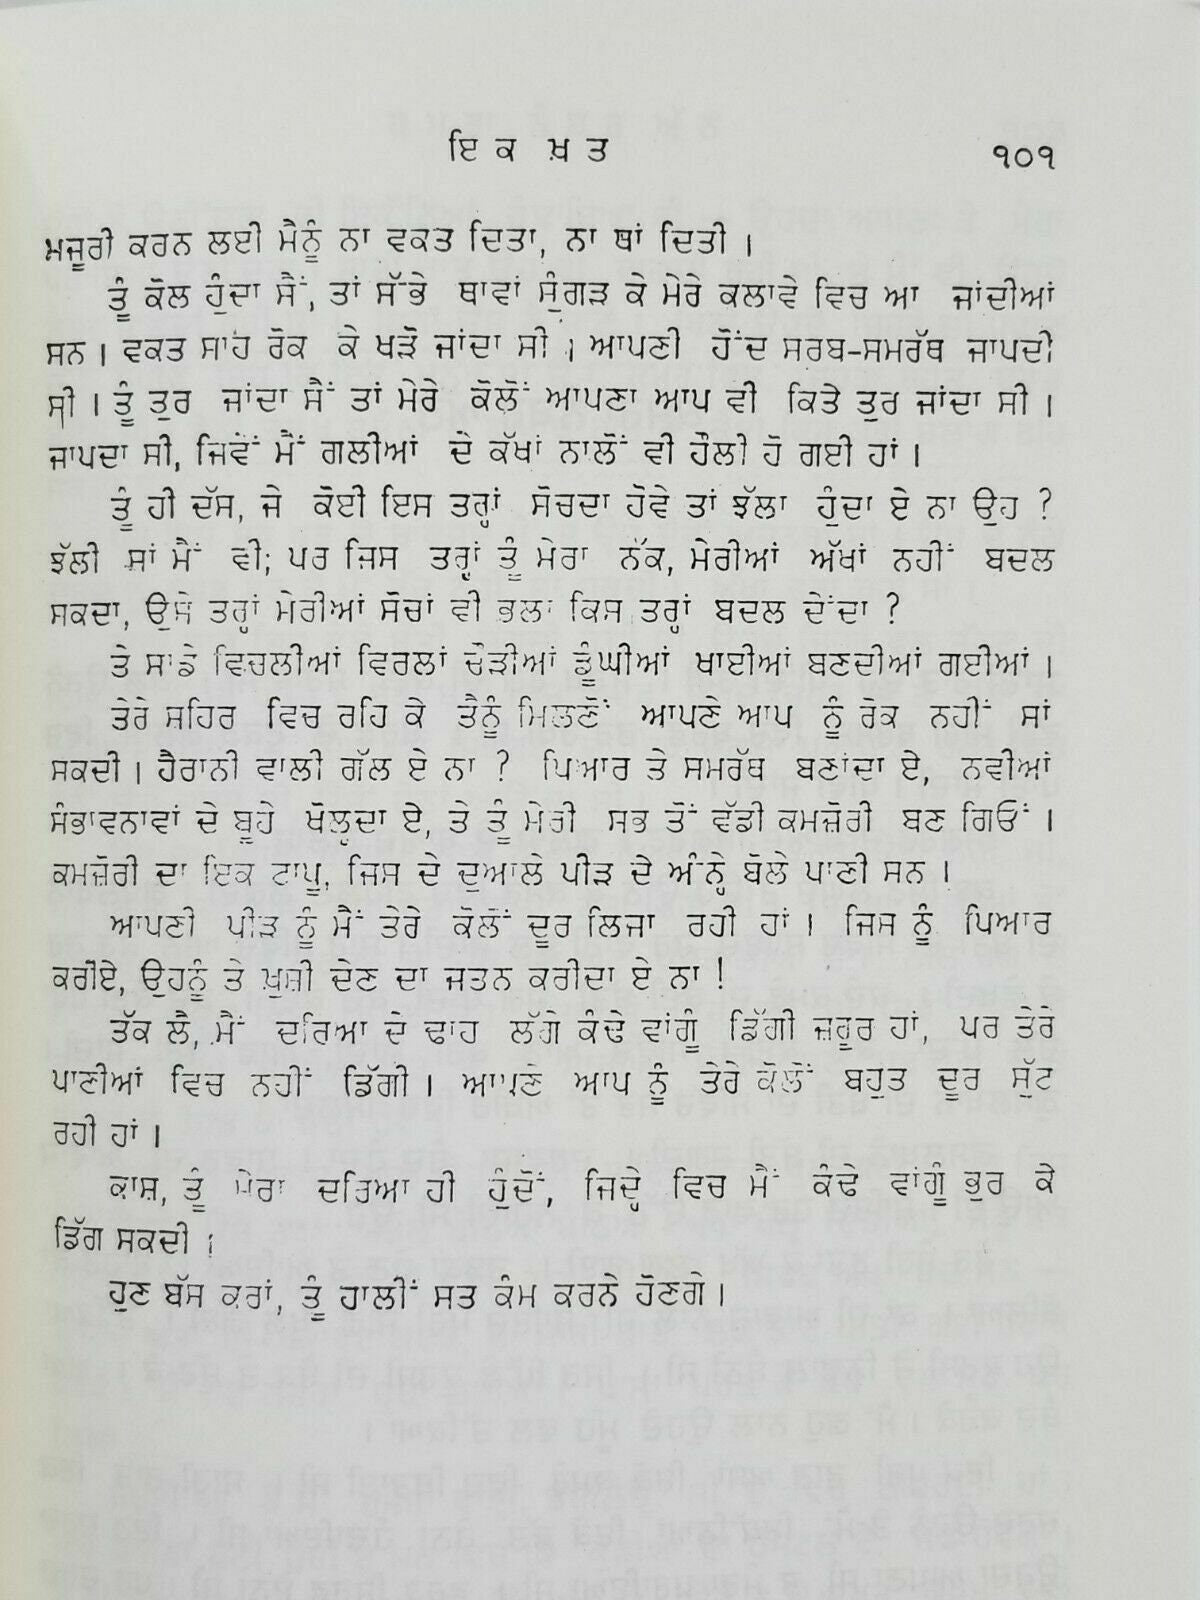 ਇਕ ਖ਼ਤ ੧੦੧
ਮਜੂਰੀ ਕਰਨ ਲਈ ਮੈਨੂੰ ਨਾ ਵਕਤ ਦਿਤਾ, ਨਾ ਥਾਂ ਦਿਤੀ ।
ਤੂੰ ਕੋਲ ਹੁੰਦਾ ਸੈਂ, ਤਾਂ ਸੱਭੇ ਥਾਵਾਂ ਸੁੰਗੜ ਕੇ ਮੇਰੇ ਕਲਾਵੇ ਵਿਚ ਆ ਜਾਂਦੀਆਂ
ਸਨ । ਵਕਤ ਸਾਹ ਰੋਕ ਕੇ ਖੜੋ ਜਾਂਦਾ ਸੀ । ਆਪਣੀ ਹੋਂਦ ਸਰਬ-ਸਮਰੱਥ ਜਾਪਦੀ
ਸੀ । ਤੂੰ ਤੁਰ ਜਾਂਦਾ ਸੈਂ ਤਾਂ ਮੇਰੇ ਕੋਲੋਂ ਆਪਣਾ ਆਪ ਵੀ ਕਿਤੇ ਤੁਰ ਜਾਂਦਾ ਸੀ ।
ਜਾਪਦਾ ਸੀ, ਜਿਵੇਂ ਮੈਂ ਗਲੀਆਂ ਦੇ ਕੱਖਾਂ ਨਾਲੋਂ ਵੀ ਹੌਲੀ ਹੋ ਗਈ ਹਾਂ ।
ਤੂੰ ਹੀ ਦੱਸ, ਜੇ ਕੋਈ ਇਸ ਤਰ੍ਹਾਂ ਸੋਚਦਾ ਹੋਵੇ ਤਾਂ ਝੱਲਾ ਹੁੰਦਾ ਏ ਨਾ ਉਹ ?
ਝੱਲੀ ਸਾਂ ਮੈਂ ਵੀ; ਪਰ ਜਿਸ ਤਰ੍ਹਾਂ ਤੂੰ ਮੇਰਾ ਨੱਕ, ਮੇਰੀਆਂ ਅੱਖਾਂ ਨਹੀਂ ਬਦਲ
ਸਕਦਾ, ਉਸੇ ਤਰ੍ਹਾਂ ਮੇਰੀਆਂ ਸੋਚਾਂ ਵੀ ਭਲਾ ਕਿਸ ਤਰ੍ਹਾਂ ਬਦਲ ਦੇਂਦਾ ?
ਤੇ ਸਾਡੇ ਵਿਚਲੀਆਂ ਵਿਰਲਾਂ ਚੌੜੀਆਂ ਡੂੰਘੀਆਂ ਖਾਈਆਂ ਬਣਦੀਆਂ ਗਈਆਂ ।
ਤੇਰੇ ਸ਼ਹਿਰ ਵਿਚ ਰਹਿ ਕੇ ਤੈਨੂੰ ਮਿਲਣੋਂ ਆਪਣੇ ਆਪ ਨੂੰ ਰੋਕ ਨਹੀਂ ਸਾਂ
ਸਕਦੀ । ਹੈਰਾਨੀ ਵਾਲੀ ਗੱਲ ਏ ਨਾ ? ਪਿਆਰ ਤੇ ਸਮਰੱਥ ਬਣਾਂਦਾ ਏ, ਨਵੀਆਂ
ਸੰਭਾਵਨਾਵਾਂ ਦੇ ਬੂਹੇ ਖੋਲ੍ਹਦਾ ਏ, ਤੇ ਤੂੰ ਮੇਰੀ ਸਭ ਤੋਂ ਵੱਡੀ ਕਮਜ਼ੋਰੀ ਬਣ ਗਿਓਂ ।
ਕਮਜ਼ੋਰੀ ਦਾ ਇਕ ਟਾਪੂ, ਜਿਸ ਦੇ ਦੁਆਲੇ ਪੀੜ ਦੇ ਅੰਨ੍ਹੇ ਬੋਲੇ ਪਾਣੀ ਸਨ ।
ਆਪਣੀ ਪੀੜ ਨੂੰ ਮੈਂ ਤੇਰੇ ਕੋਲੋਂ ਦੂਰ ਲਿਜਾ ਰਹੀ ਹਾਂ । ਜਿਸ ਨੂੰ ਪਿਆਰ
ਕਰੀਏ, ਉਹਨੂੰ ਤੇ ਖ਼ੁਸ਼ੀ ਦੇਣ ਦਾ ਜਤਨ ਕਰੀਦਾ ਏ ਨਾ !
ਤੱਕ ਲੈ, ਮੈਂ ਦਰਿਆ ਦੇ ਢਾਹ ਲੱਗੇ ਕੰਢੇ ਵਾਂਗੂੰ ਡਿੱਗੀ ਜ਼ਰੂਰ ਹਾਂ, ਪਰ ਤੇਰੇ
ਪਾਣੀਆਂ ਵਿਚ ਨਹੀਂ ਡਿੱਗੀ । ਆਪਣੇ ਆਪ ਨੂੰ ਤੇਰੇ ਕੋਲੋਂ ਬਹੁਤ ਦੂਰ ਸੁੱਟ
ਰਹੀ ਹਾਂ ।
ਕਾਸ਼, ਤੂੰ ਮੇਰਾ ਦਰਿਆ ਹੀ ਹੁੰਦੋਂ, ਜਿਦ੍ਹੇ ਵਿਚ ਮੈਂ ਕੰਢੇ ਵਾਂਗੂੰ ਭੁਰ ਕੇ
ਡਿੱਗ ਸਕਦੀ ।
ਹੁਣ ਬੱਸ ਕਰਾਂ, ਤੂੰ ਹਾਲੀਂ ਸਤ ਕੰਮ ਕਰਨੇ ਹੋਣਗੇ ।